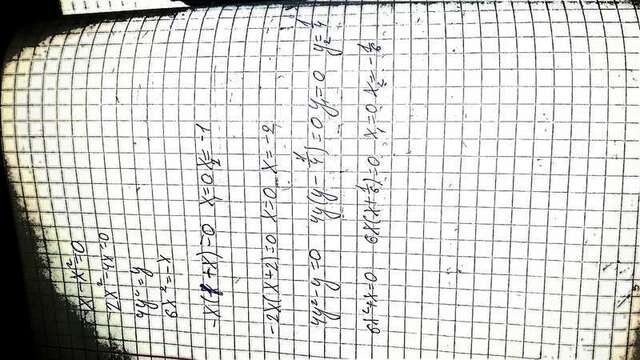 -x - x² = 0
2x² - 4x = 0
4y² = y
6x² = -x
-x(1 + x) = 0 x₁ = 0 x₂ = -1
-2x(x + 2) = 0 x = 0 x = -2
4y² - y = 0 4y(y - 1/4) = 0 y₁ = 0 y₂ = 1/4
6x² + x = 0 6x(x + 1/6) = 0 x₁ = 0 x₂ = -1/6